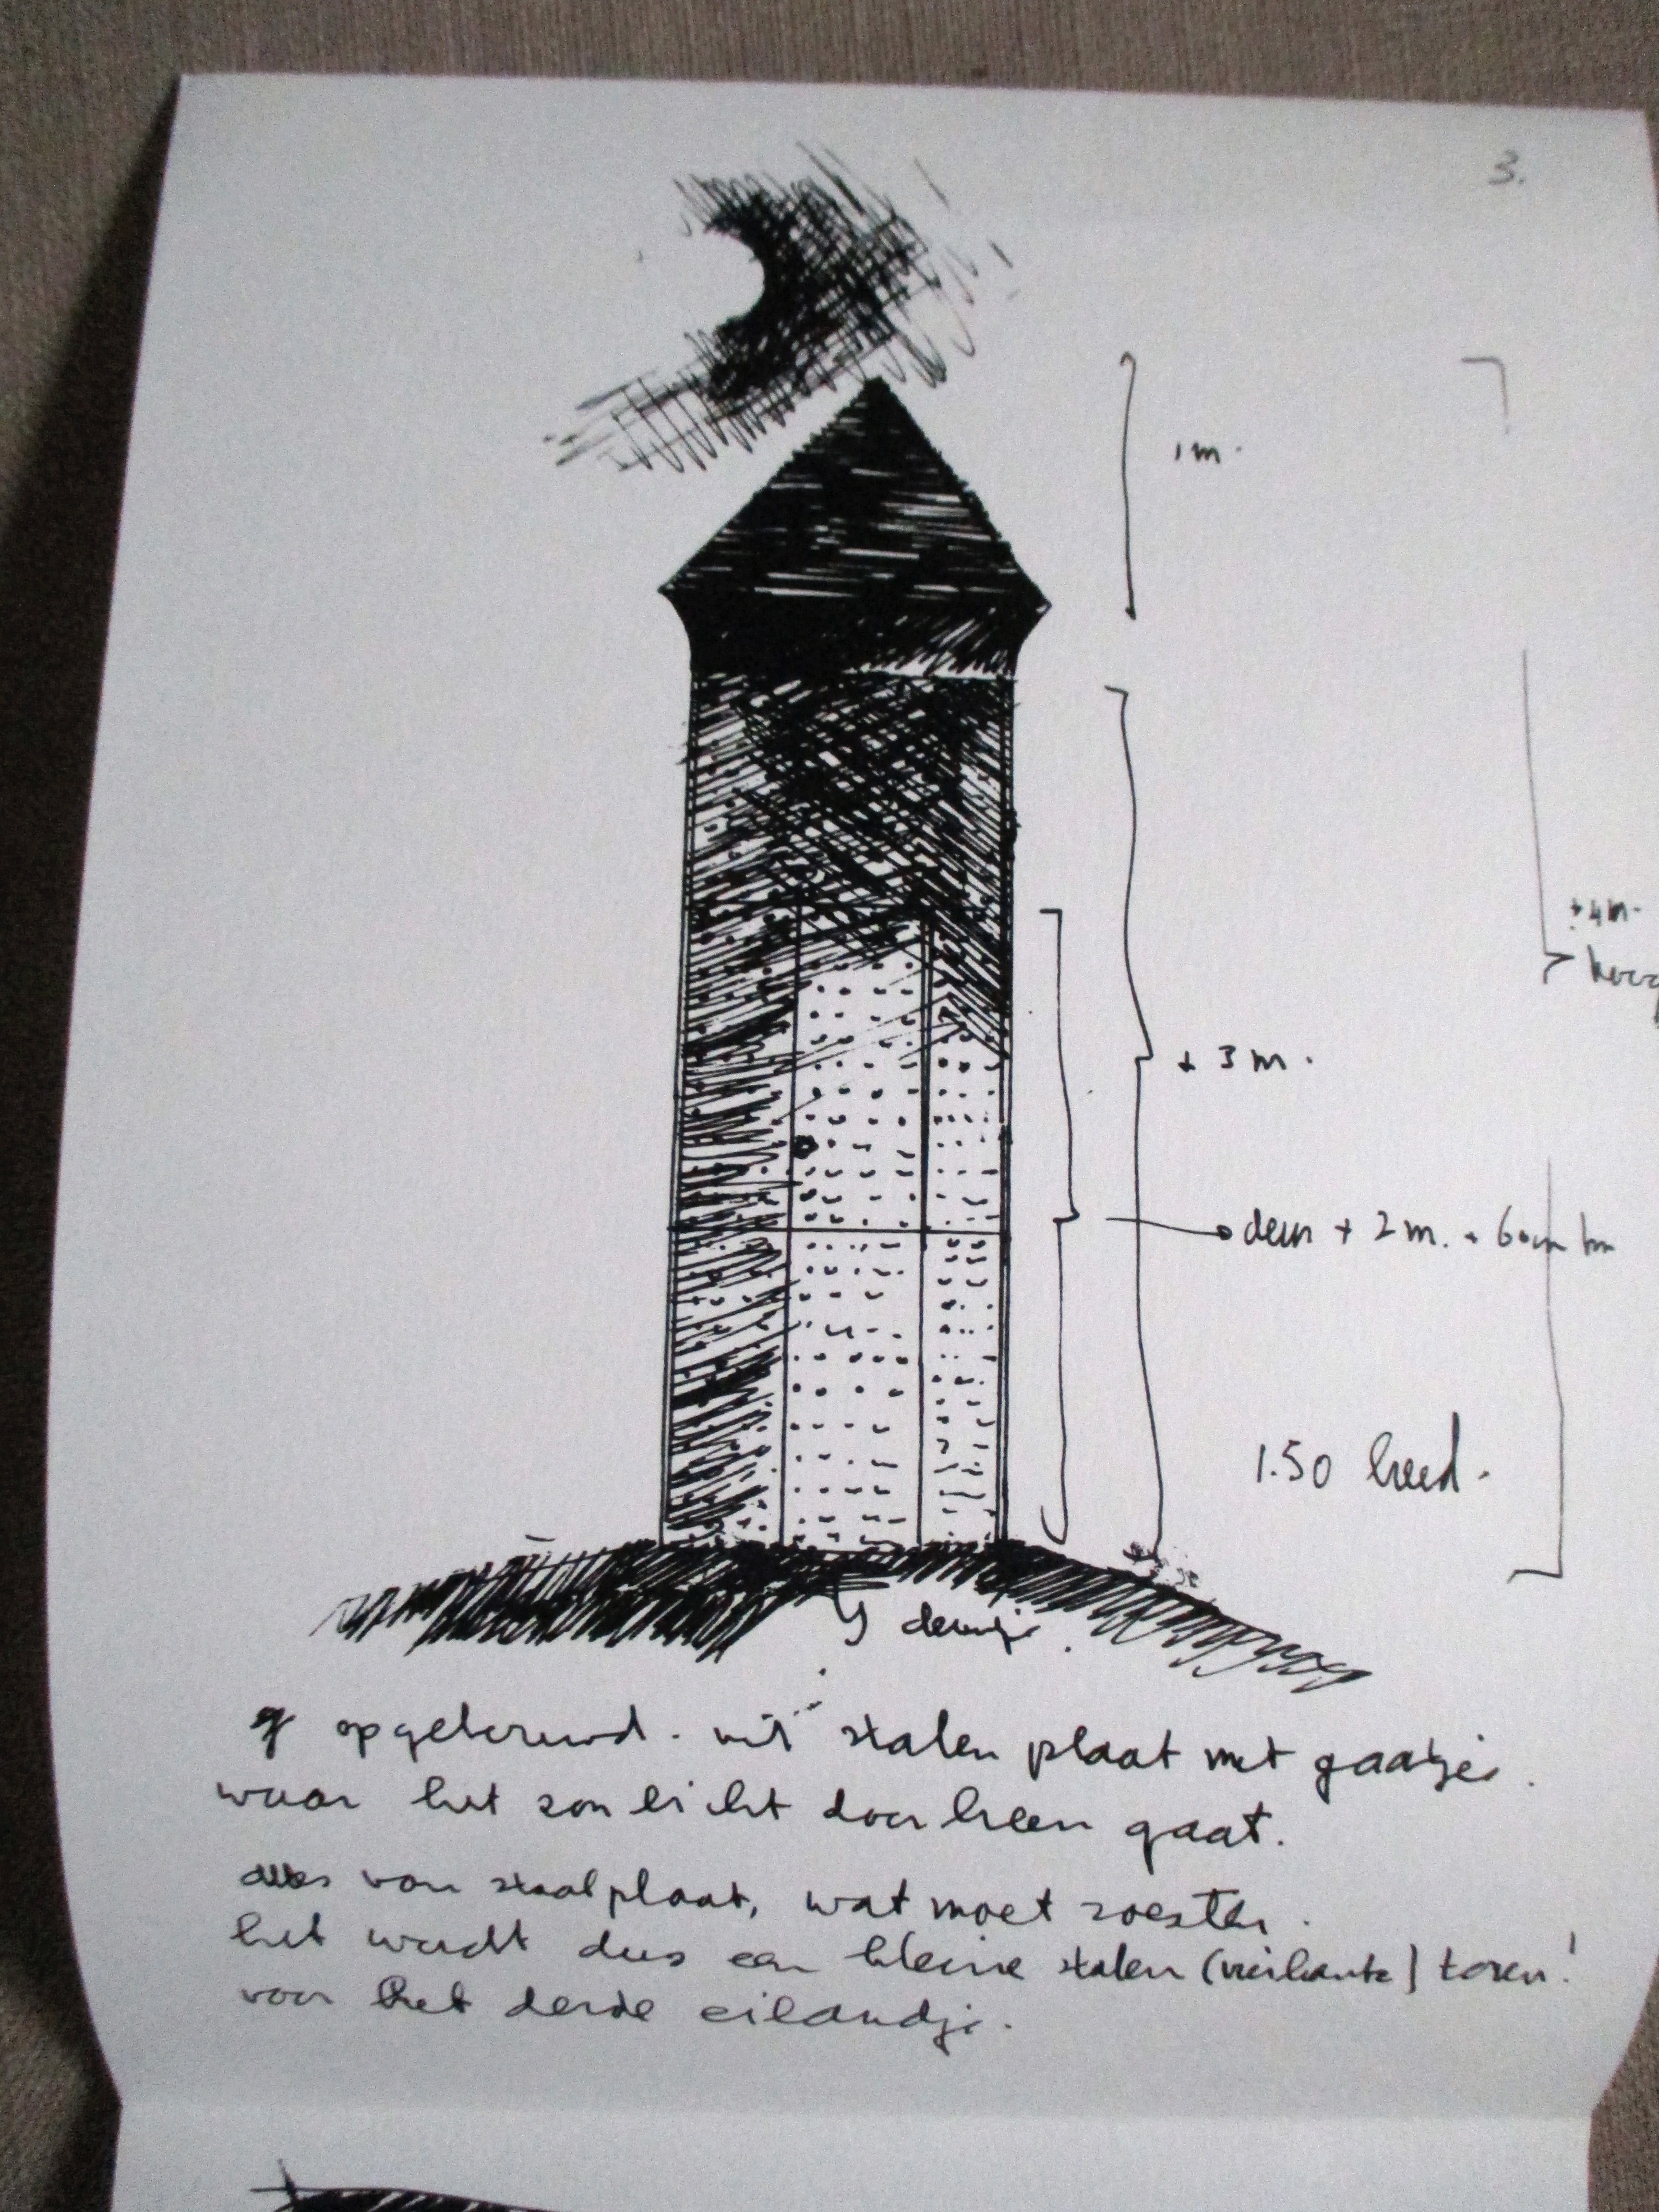 3.
1 m.
± 4 m.
± 3 m.
deur ± 2 m.
1.50 breed.
deurtje.
opgebouwd. uit stalen plaat met gaatjes.
waar het zonlicht doorheen gaat.
alles van staalplaat, wat moet roesten.
het wordt dus een kleine stalen (vierkante) toren!
voor het derde eilandje.